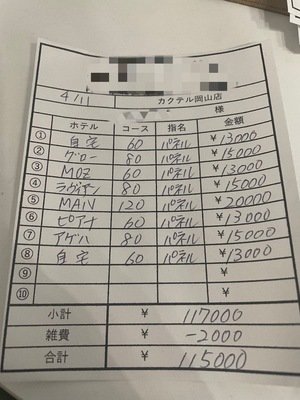 4/11 カクテル岡山店
様
ホテル コース 指名 金額
① 自宅 60 パネル ¥13000
② グロー 80 パネル ¥15000
③ MOZ 60 パネル ¥13000
④ ラヴィアン 80 パネル ¥15000
⑤ MAIN 120 パネル ¥20000
⑥ ピアナ 60 パネル ¥13000
⑦ アゲハ 80 パネル ¥15000
⑧ 自宅 60 パネル ¥13000
⑨ ¥
⑩ ¥
小計 ¥ 117000
雑費 ¥ -2000
合計 ¥ 115000